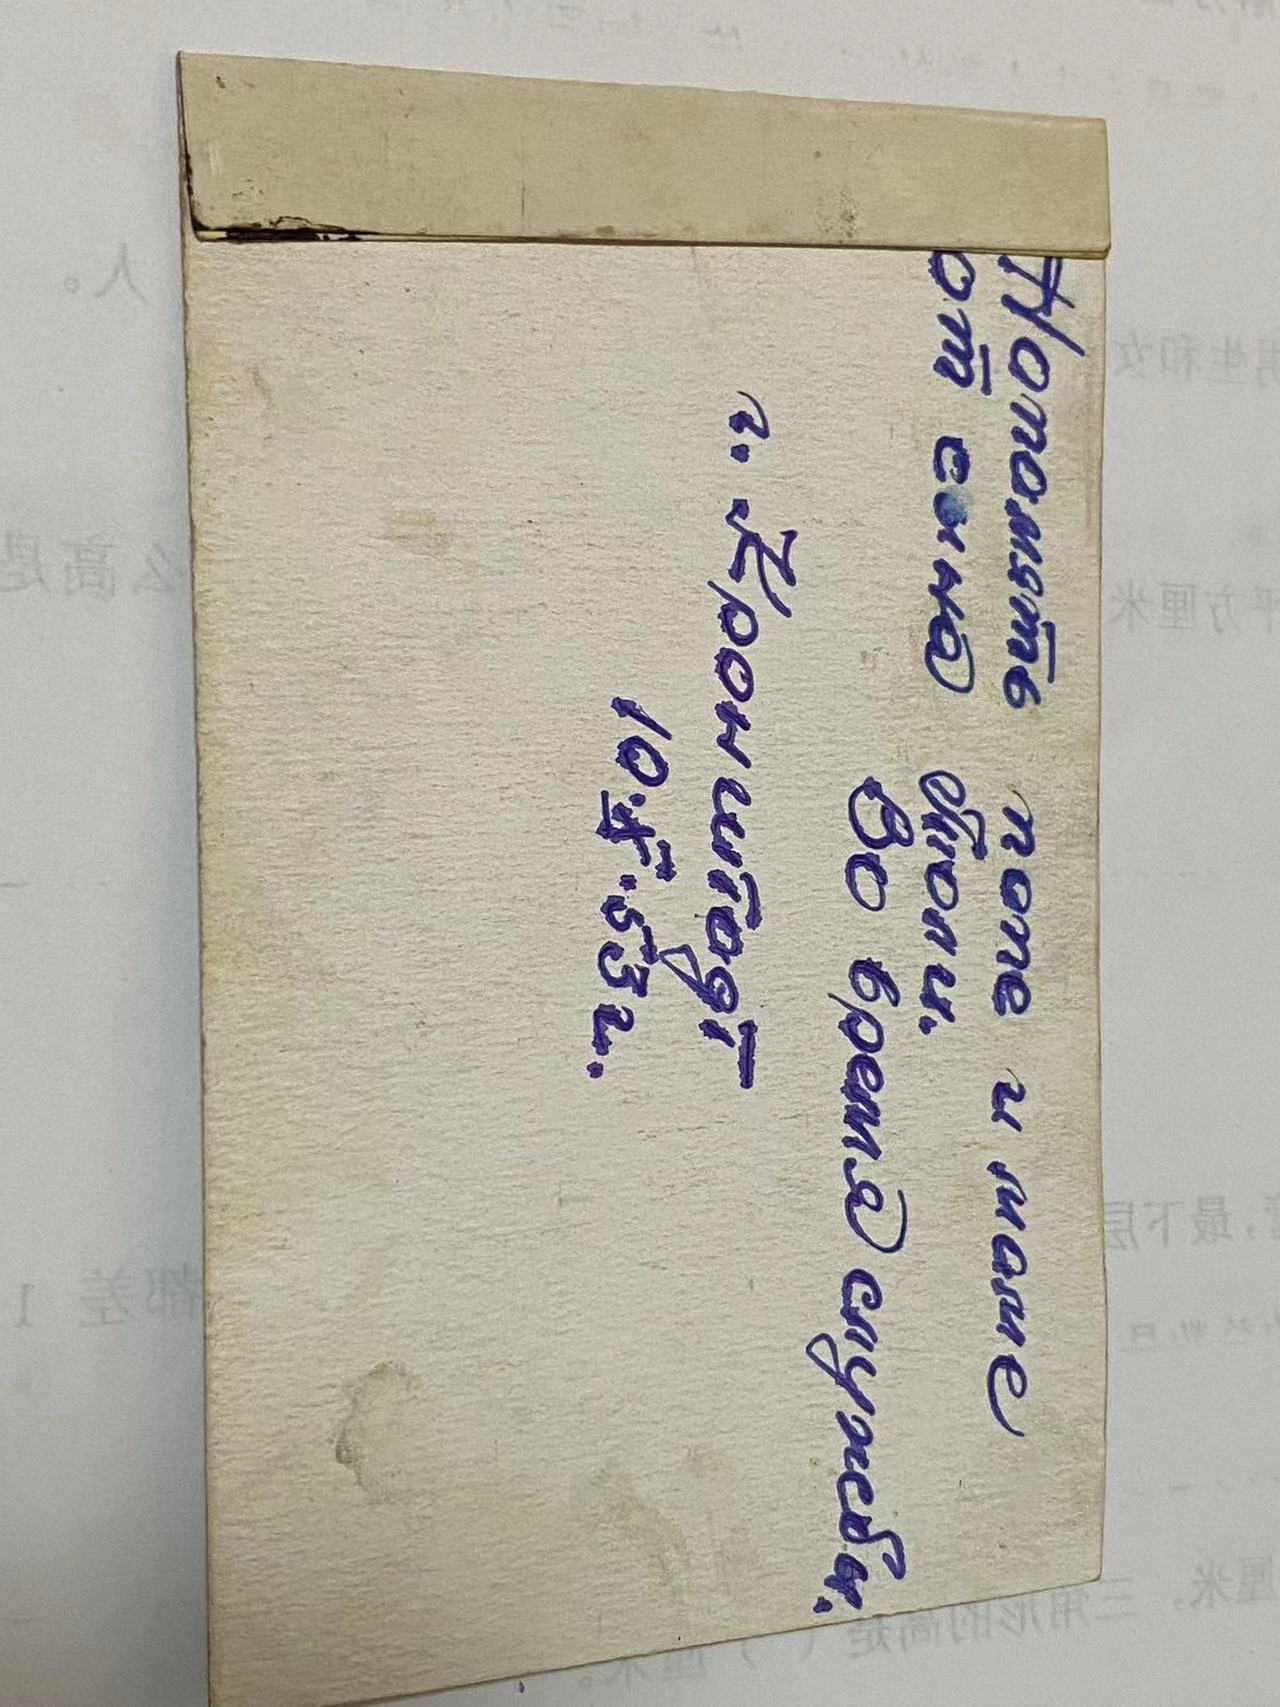 На память папе и маме
от сына Толи.
Во время службы.
г. Кронштадт
10.X.53г.